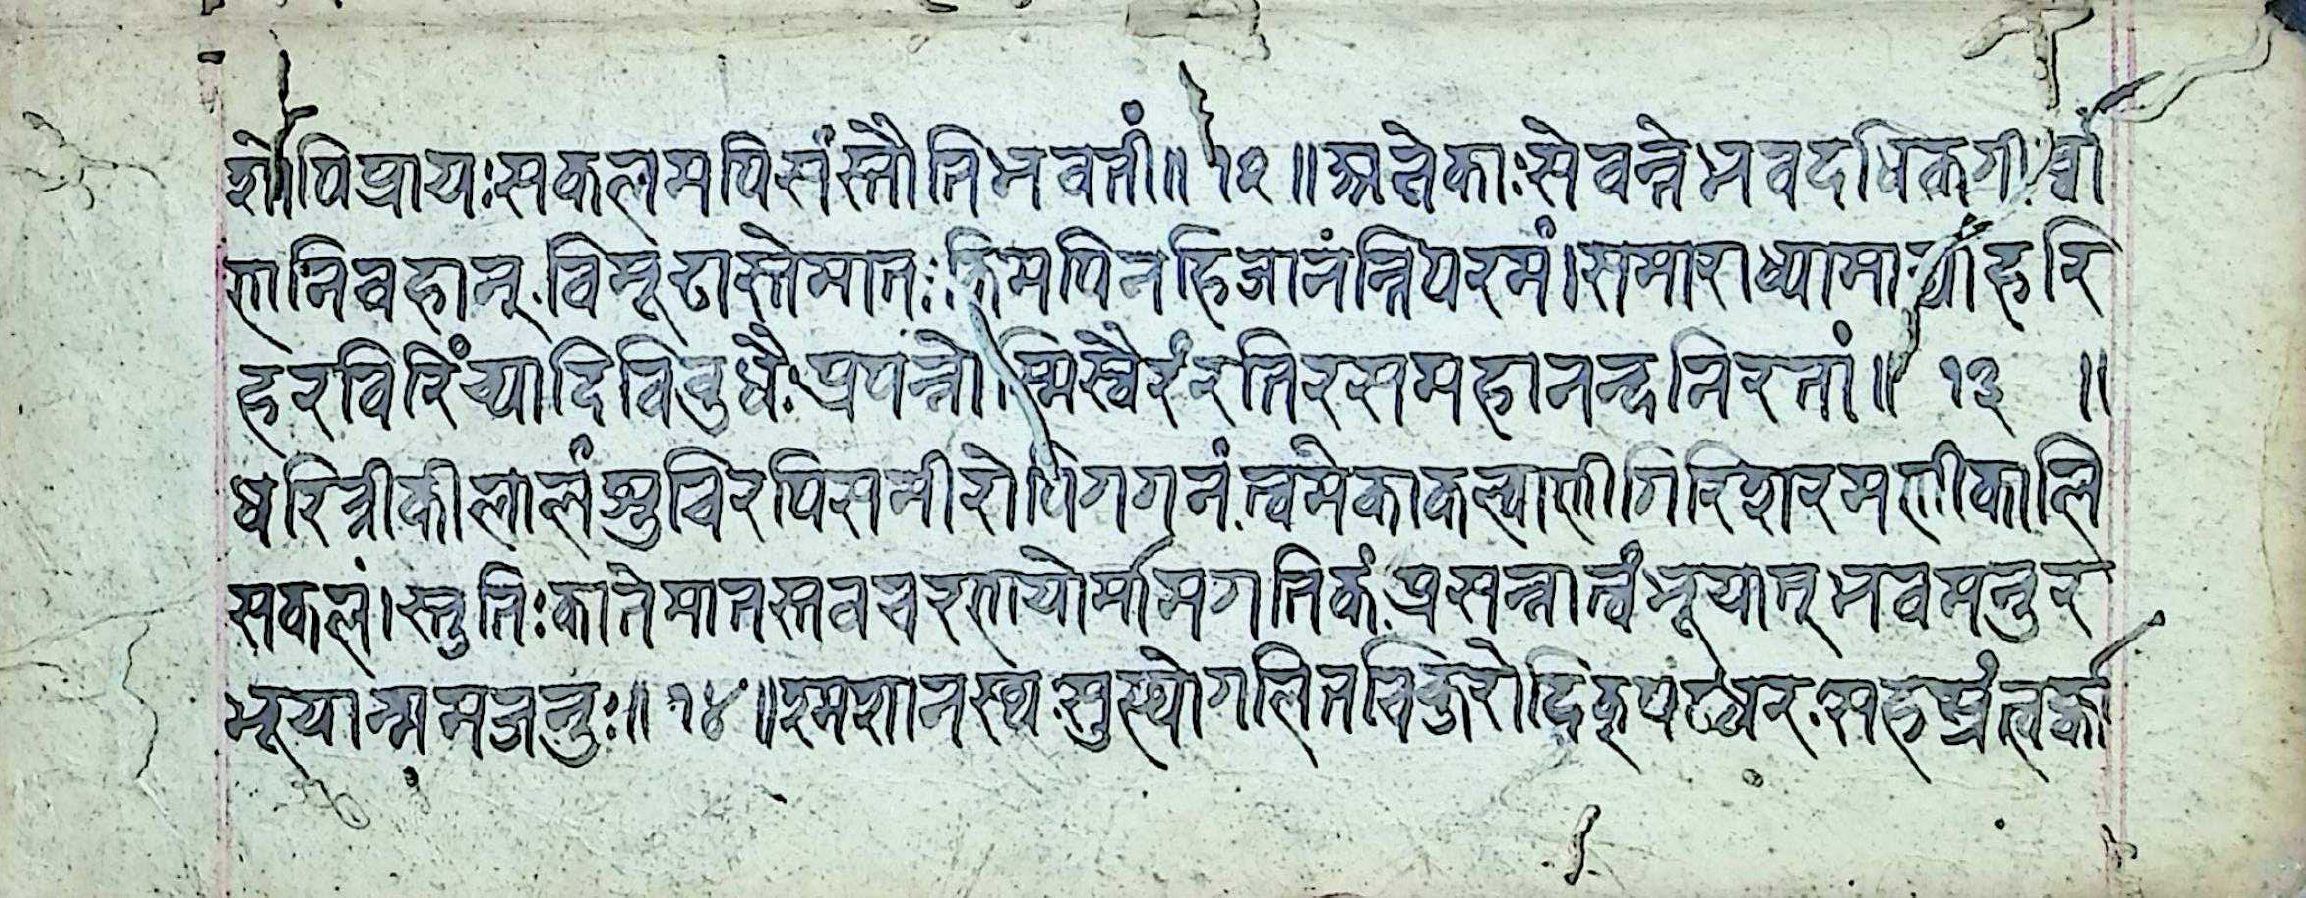 शोपिप्रायःसकलमपिसंस्तौतिभवतीं॥१२॥अनेकाःसेवन्तेभवदधिकगीर्व्वा
णनिवहान्.विमूढास्तेमातःकिमपिनहिजानंन्तिपरमं।समाराध्यामाद्यांहरि
हरविरिंच्यादिविबुधैःप्रपन्नोस्मिस्वैरंरतिरसमहानन्दनिरतां॥१३॥
धरित्रीकीलालंशुचिरपिसमीरोपिगगनं.त्वमेकाकल्याणीगिरिशरमणीकालि
सकलं।स्तुतिःकातेमातस्तवचरणयोर्मामगतिकं.प्रसन्नात्वंभूयात्भवमनुर
भूयान्ममजनुः॥१४॥श्मशानस्थ.सुस्थोगलितचिकुरोदिक्पटधर.सहस्रंत्वर्का